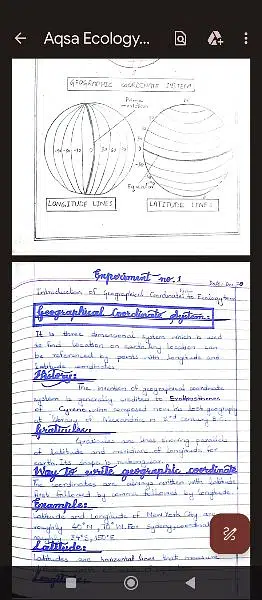 Aqsa Ecology...
GEOGRAPHIC COORDINATE SYSTEM
Prime
LONGITUDE LINES
Equator
LATITUDE LINES
Experiment no. 1
Introduction of Geographical Coordinates to Ecosystem
Geographical Coordinate System:
It is three dimensional system which is used
to find location on earth. Any location can
be referenced by points with longitude and
latitude coordinates.
History:
The invention of geographical coordinate
system is generally credited to Eratosthenes
of Cyrene who composed now his lost geography
at library of Alexandria in 3rd century B.C
Graticules:
Graticules are lines showing parallels
of latitude and meridian of longitude for
earth. Its shape is
Way to write geographic coordinate
The coordinates are always written with latitude
first followed by comma followed by longitude.
Example:
Latitude and Longitude of New York City are
roughly 40°N, 70°W. For
34°S, 150°E
Latitude:
Latitudes are horizontal lines that measure
Longitude: